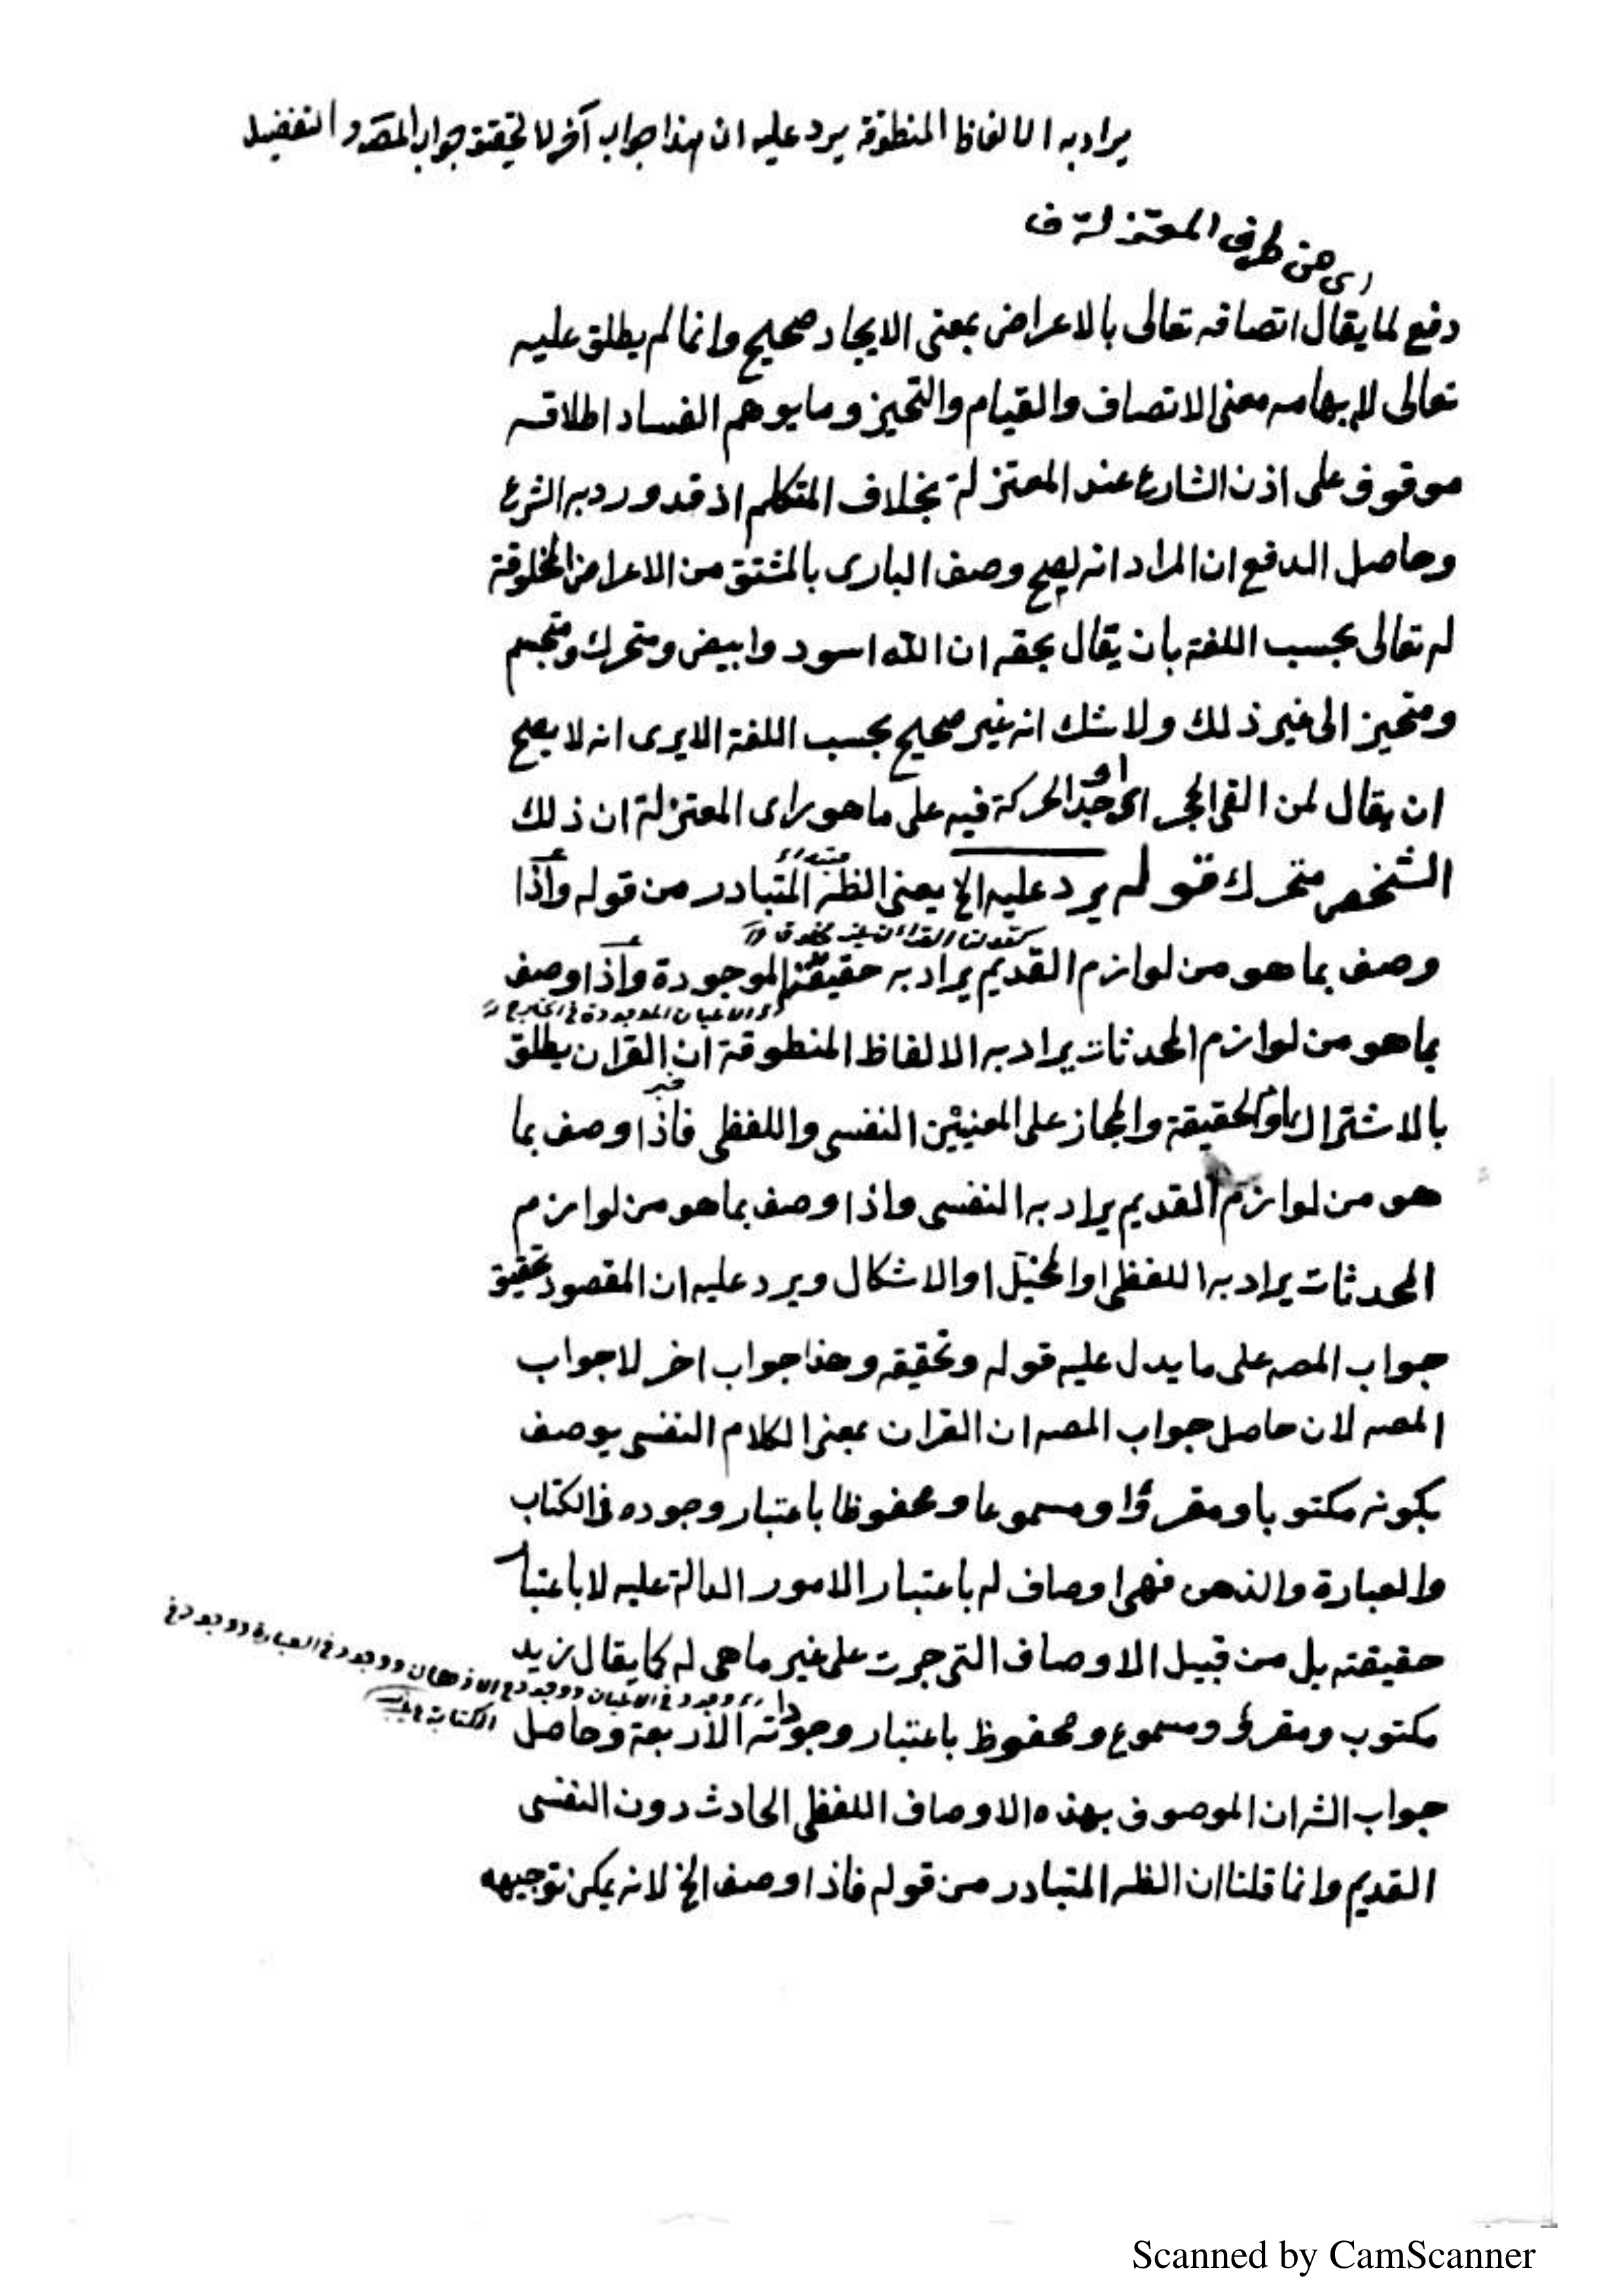 يراد به الالفاظ المنطوقة يرد عليه ان هذا جواب آخر لا تحقيق جواب المصـ و التفصيل
اى من طرف المعتزلة ف
دفع لما يقال اتصافه تعالى بالاعراض بمعنى الايجاد صحيح وانما لم يطلق عليه
تعالى لايهامه معنى الاتصاف والقيام والتحيز وما يوهم الفساد اطلاقه
موقوف على اذن الشارع عند المعتزلة بخلاف المتكلم اذ قد ورد به الشرع
وحاصل الدفع ان المراد انه يصح وصف البارى بالمشتق من الاعراض المخلوقة
له تعالى بحسب اللغة بان يقال بحقه ان الله اسود وابيض ومتحرك ومتجسم
ومتحيز الى غير ذلك ولا شك انه غير صحيح بحسب اللغة الا يرى انه لا يصح
ان يقال لمن القى الحجر اى اوجد الحركة فيه على ما هو راى المعتزلة ان ذلك
الشخص متحرك قوله يرد عليه الخ يعنى الظـ المتبادر من قوله واذا
كقولنا القرآن غير مخلوق
وصف بما هو من لوازم القديم يراد به حقيقته الموجودة واذا وصف
اى الاعيان الموجودة فى الخارج
بما هو من لوازم المحدثات يراد به الالفاظ المنطوقة ان القران يطلق
بالاشتراك او الحقيقة والمجاز على المعنيين النفسى واللفظى فاذا وصف بما
هو من لوازم القديم يراد به النفسى واذا وصف بما هو من لوازم
المحدثات يراد به اللفظى او المخيّل او الاشكال ويرد عليه ان المقصود تحقيق
جواب المصـ على ما يدل عليه قوله وتحقيقه وهذا جواب اخر لا جواب
المصـ لان حاصل جواب المصـ ان القران بمعنى الكلام النفسى يوصف
بكونه مكتوبا ومقروًا ومسموعا ومحفوظا باعتبار وجوده فى الكتاب
والعبارة والذهن فهى اوصاف له باعتبار الامور الدالة عليه لا باعتبار
حقيقته بل من قبيل الاوصاف التى جرت على غير ما هى له كما يقال زيد
اى وجود فى الاعيان ووجود فى الاذهان ووجود فى العبارة ووجود فى
الكتابة
مكتوب ومقرؤ ومسموع ومحفوظ باعتبار وجوداته الاربعة وحاصل
جواب الشـ ان الموصوف بهذه الاوصاف اللفظى الحادث دون النفسى
القديم وانما قلنا ان الظـ المتبادر من قوله فاذا وصف الخ لانه يمكن توجيهه
Scanned by CamScanner